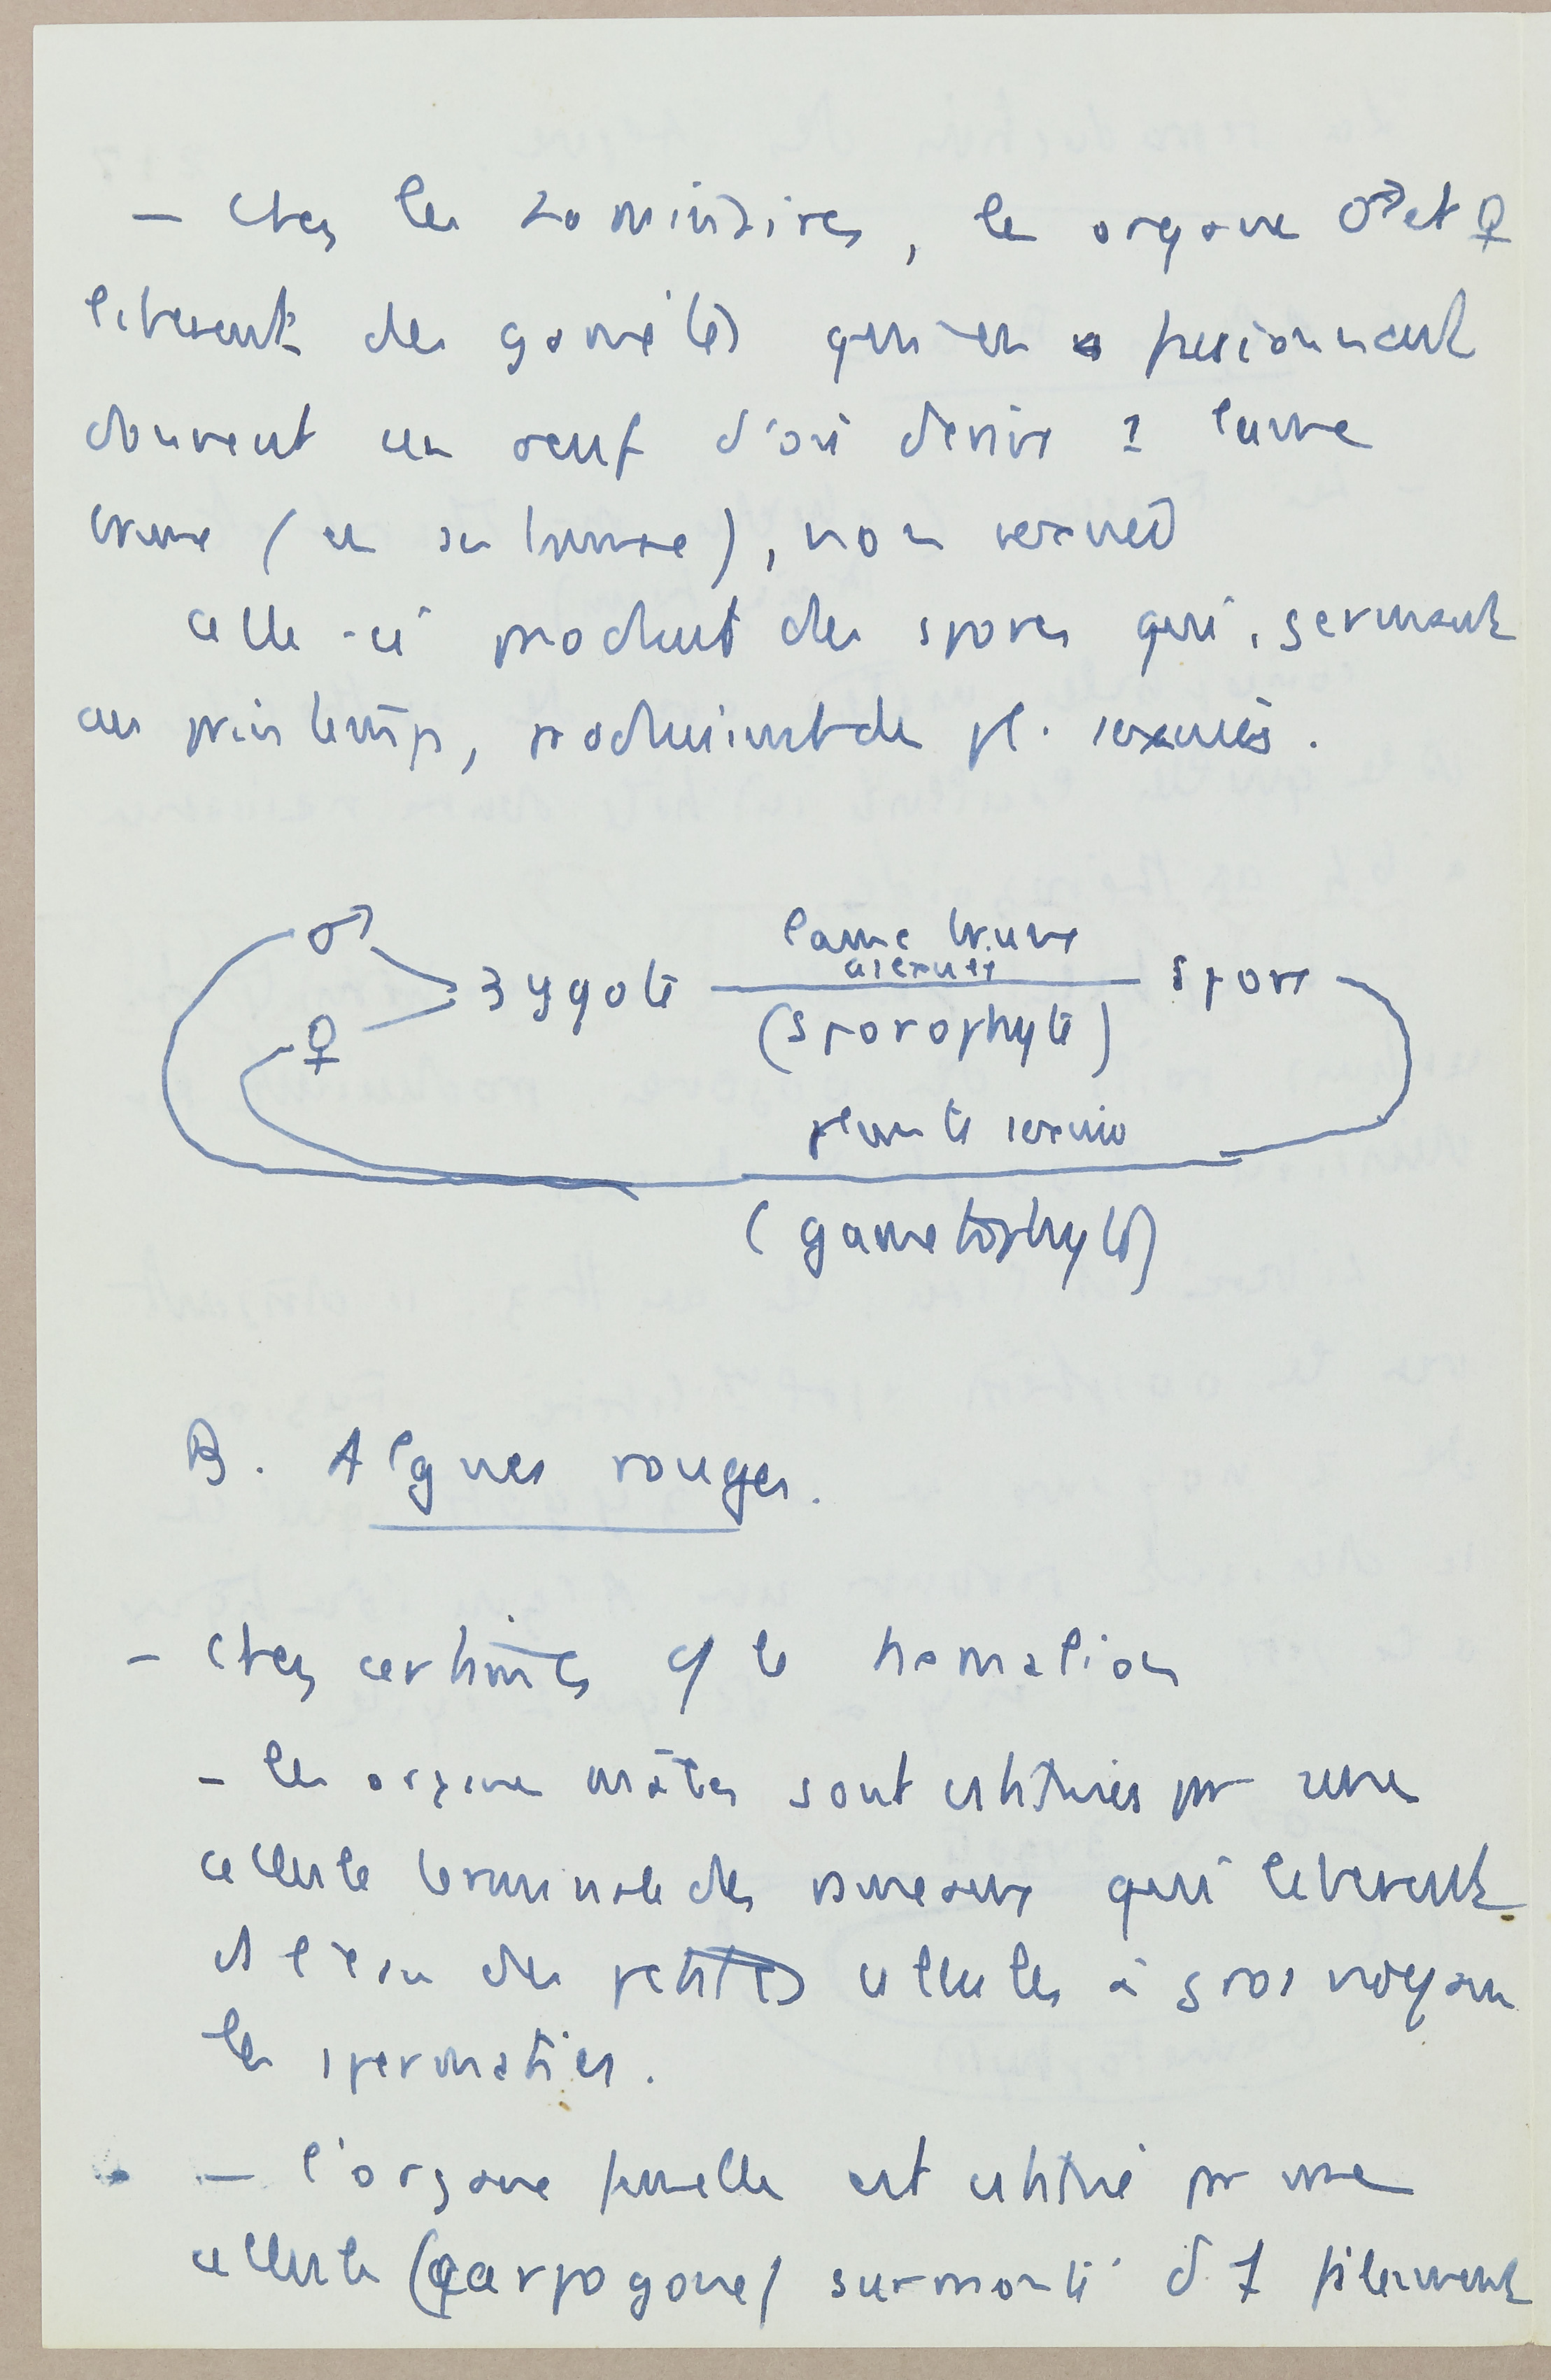 - Chez les Laminaires, les organes ♂ et ♀
libèrent des gamètes qui en fusionnant
donnent un oeuf d'où dérive 1 lame
brune (en automne), non sexuée
celle-ci produit des spores qui, germant
au printemps, produisent des pl. sexuées.
♂
♀
zygote
lame brune
asexuée
(sporophyte)
spore
plante sexuée
(gamétophyte)
B. Algues rouges.
- Chez certaines cf le némalion
- les organes mâles sont constitués par une
cellule terminale des rameaux qui libèrent
ds l'eau des petites cellules à gros noyau
les spermaties.
- l'organe femelle est constitué par une
cellule (carpogone) surmonté d'1 filament